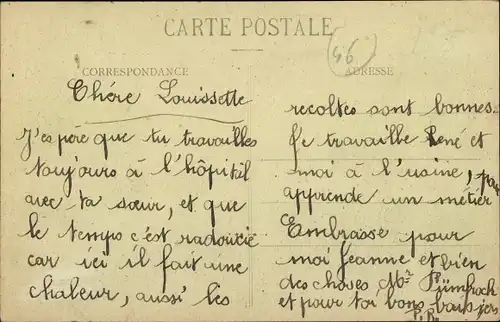 CARTE POSTALE
46
CORRESPONDANCE
ADRESSE
Chére Louissette
J'espére que tu travailles
toujours à l'hôpital
avec ta sœur, et que
le temps c'est radoucie
car ici il fait une
chaleur, aussi les
recoltes sont bonnes.
Je travaille René et
moi à l'usine, pour
apprendre un métier
Embrasse pour
moi Jeanne et bien
des choses Mr
et pour toi bons baisers